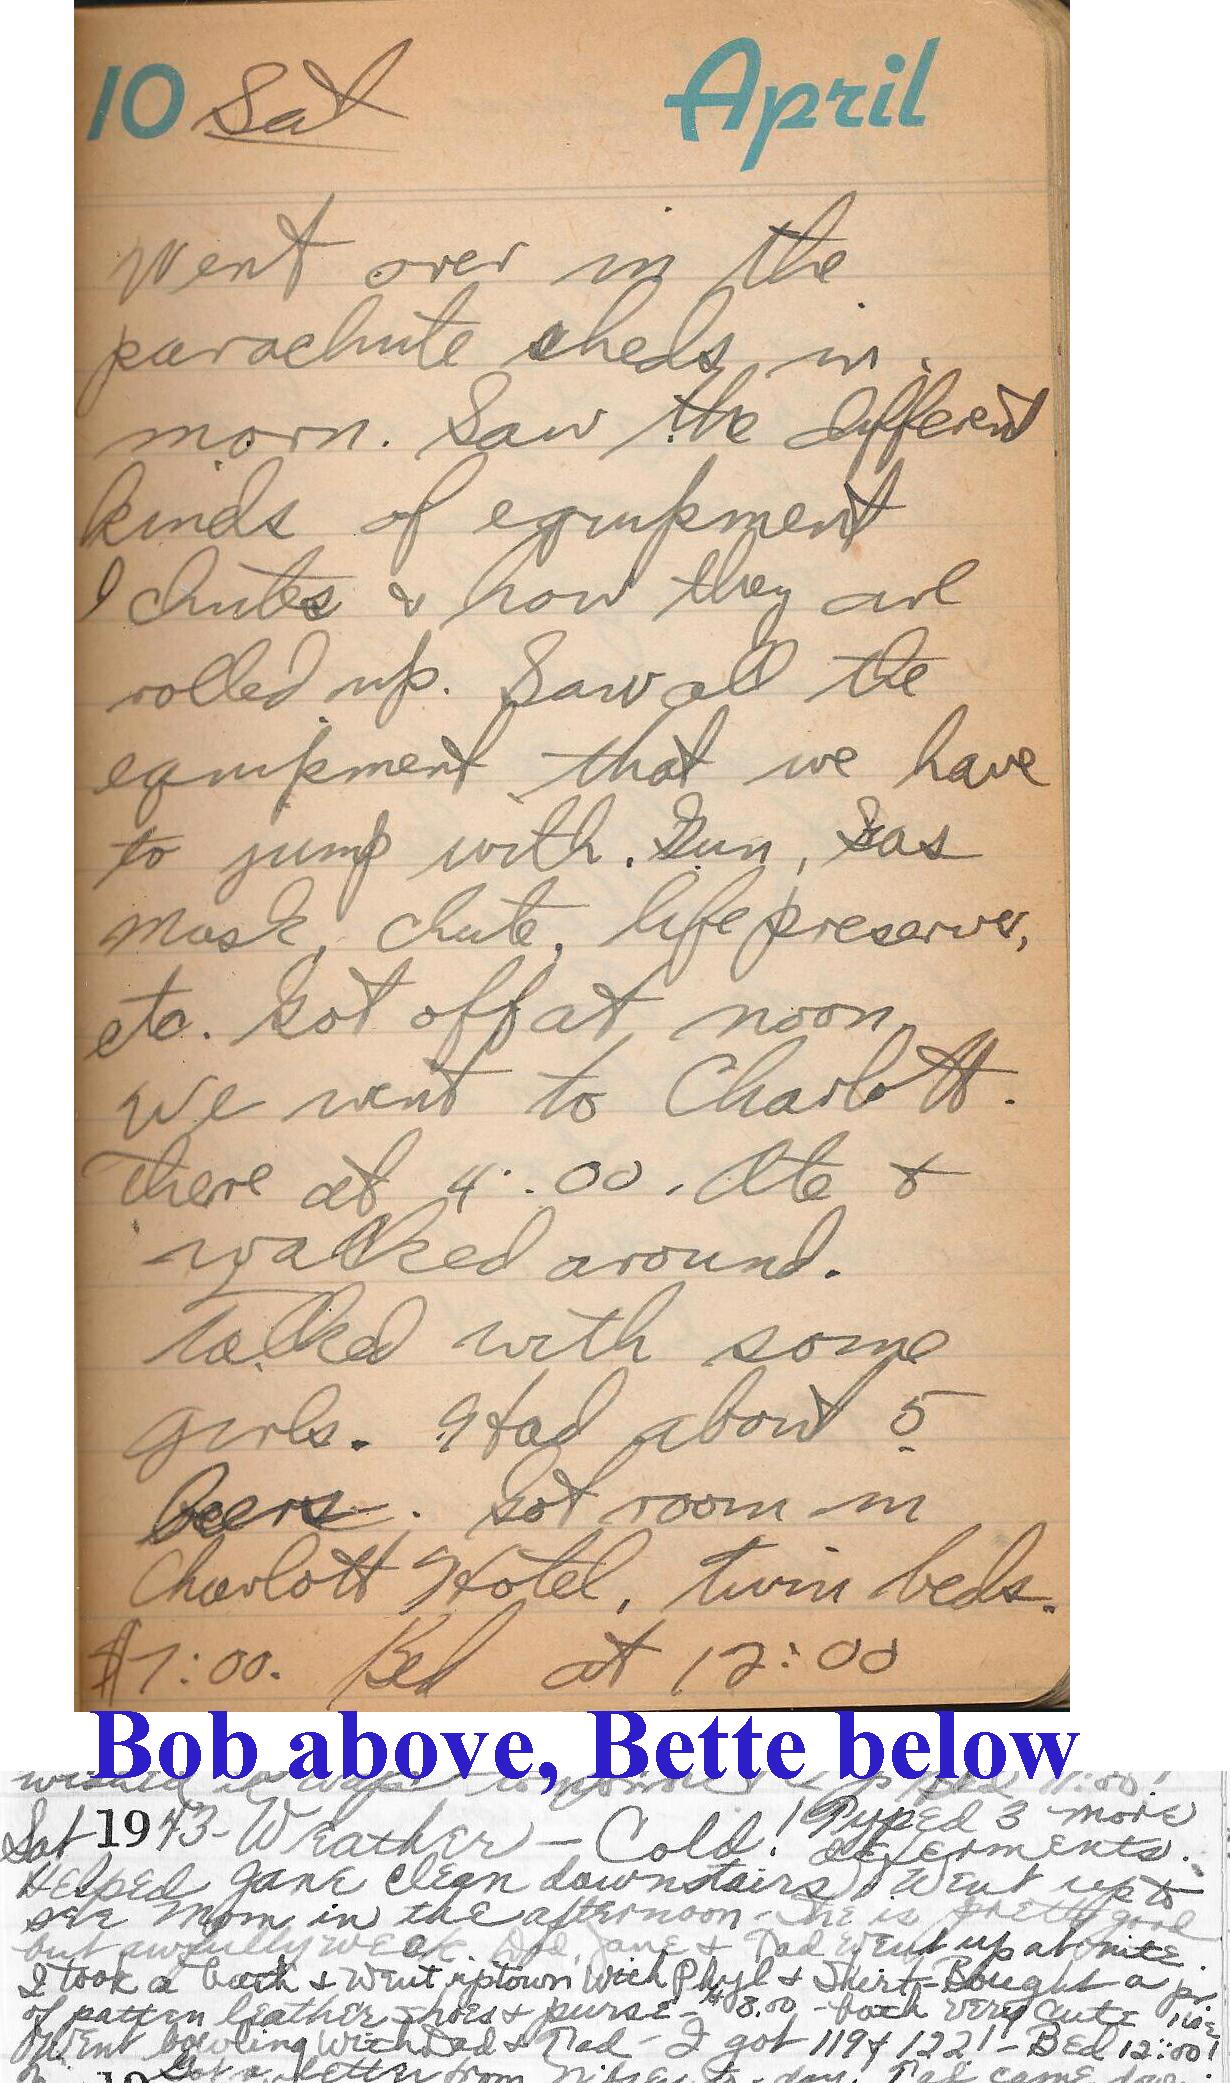 10 Sat April
Went over in the
parachute sheds in
morn. Saw the different
kinds of equipment
I chutes & how they are
rolled up. Saw all the
equipment that we have
to jump with. Gun, Gas
Mask, chute, life preserver,
etc. Got off at noon,
We went to Charlott.
There at 4:00. Ate &
walked around.
Talked with some
girls. Had about 5
beers. Got room in
Charlott Hotel, twin beds.
$7:00. Bed at 12:00
Bob above, Bette below
Sat 1943 - Weather - Cold! Typed 3 more
deferments.
Helped Jane clean downstairs. Went up to
see Mom in the afternoon - She is pretty good
but awfully weak. Dad, Jane & Tad went up at nite.
I took a bath & went uptown with Phyl & Shirt - Bought a pr
of patten leather shoes & purse - $8.00 - both very cute
Went bowling with Dad & Tad - I got 119 & 122! - Bed 12:00!
Got a letter from to-day. Tad came